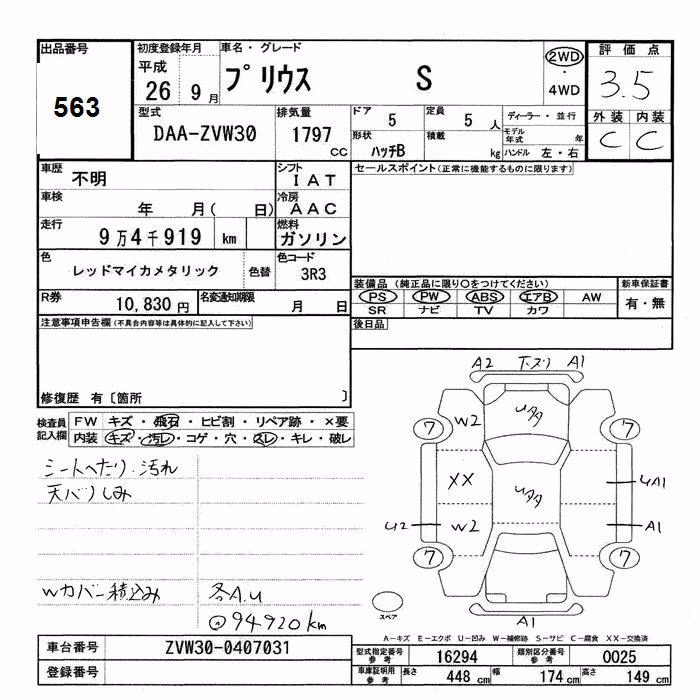 出品番号 初度登録年月 車名・グレード 評価点
563
平成 26 9月 プリウス S 2WD・4WD 3.5
型式 排気量 ドア 5 定員 5人 ディーラー・並行 外装 内装
DAA-ZVW30 1797CC 形状 ハッチB 積載 kg モデル年式 年 ハンドル 左・右 C C
車歴 不明 シフト IAT セールスポイント(正常に機能するものに限ります)
車検 年 月( 日) 冷房 AAC
走行 9万4千919 km 燃料 ガソリン
色 レッドマイカメタリック 色替 色コード 3R3
装備品 (純正品に限り○をつけてください) 新車保証書
PS PW ABS エアB AW 有・無
SR ナビ TV カワ
R券 10,830円 名変通知期限 月 日
後日品
注意事項申告欄(不具合内容等は具体的に記入して下さい)
修復歴 有〔箇所 〕
検査員記入欄 FW キズ・飛石・ヒビ割・リペア跡・×要
内装 キズ・汚レ・コゲ・穴・スレ・キレ・破レ
シートへたり・汚れ
天バリしみ
Wカバー積込み 各A.U
◎94920km
A2 下ズリ A1
7 W2 UAA 7
XX UAA UA1
U2 W2 A1
7 7
スペア
A1
A-キズ E-エクボ U-凹み W-補修跡 S-サビ C-腐食 XX-交換済
車台番号 ZVW30-0407031
登録番号
型式指定番号参考 16294 類別区分番号参考 0025
車庫証明用参考 長さ 448cm 幅 174cm 高さ 149cm